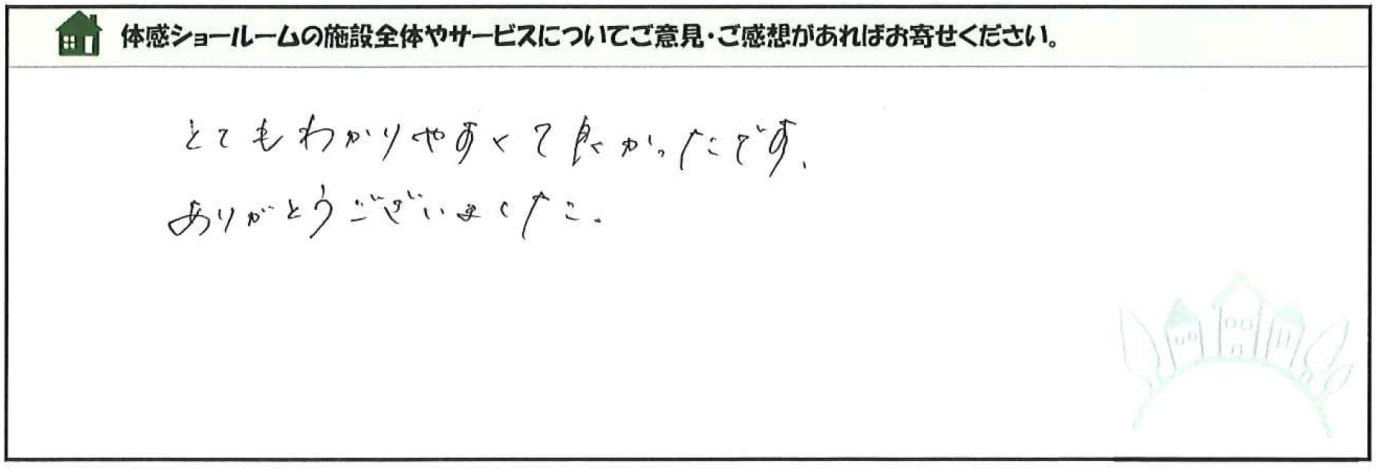 体感ショールームの施設全体やサービスについてご意見・ご感想があればお寄せください。
とてもわかりやすくて良かったです。
ありがとうございました。